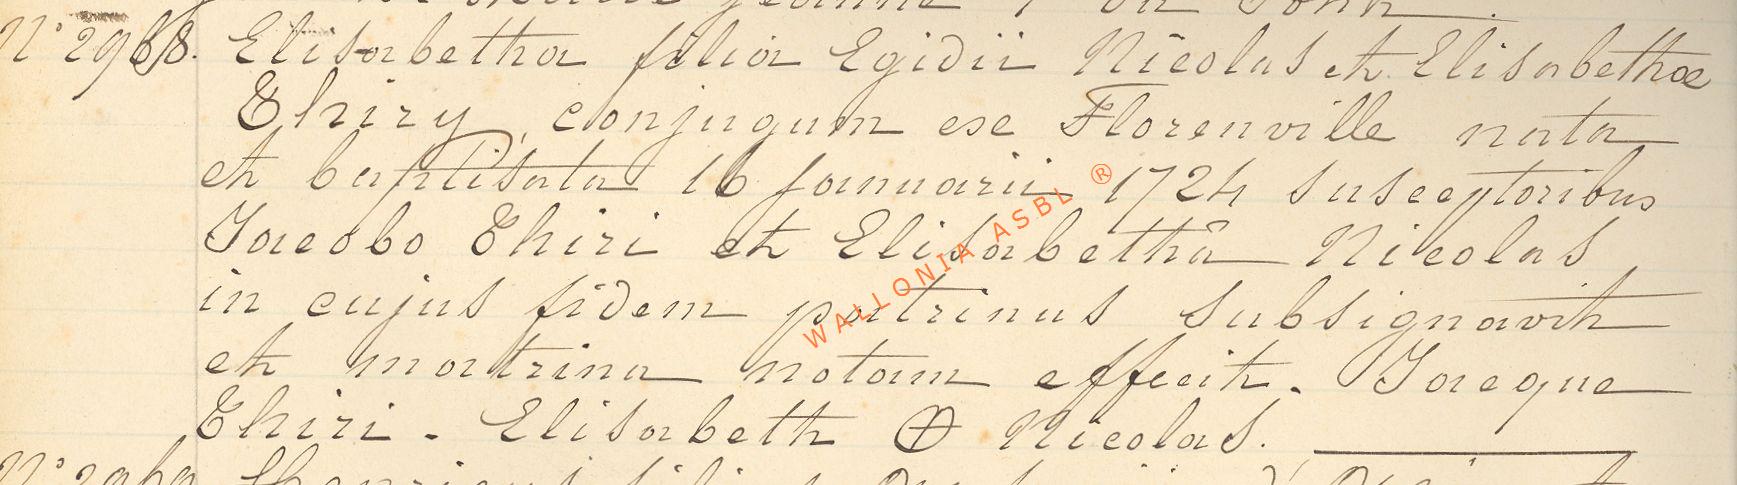 N° 2968. Elisabetha filia Egidii Nicolas et Elisabethae
Thiry, conjugum ex Florenville nata
et baptisata 16 januarii 1724 susceptoribus
Jacobo Thiri et Elisabethâ Nicolas
in cujus fidem patrinus subsignavit
et matrina notam effecit. Jacque
Thiri. Elisabeth Nicolas.
N° 2969
WALLONIA ASBL ®